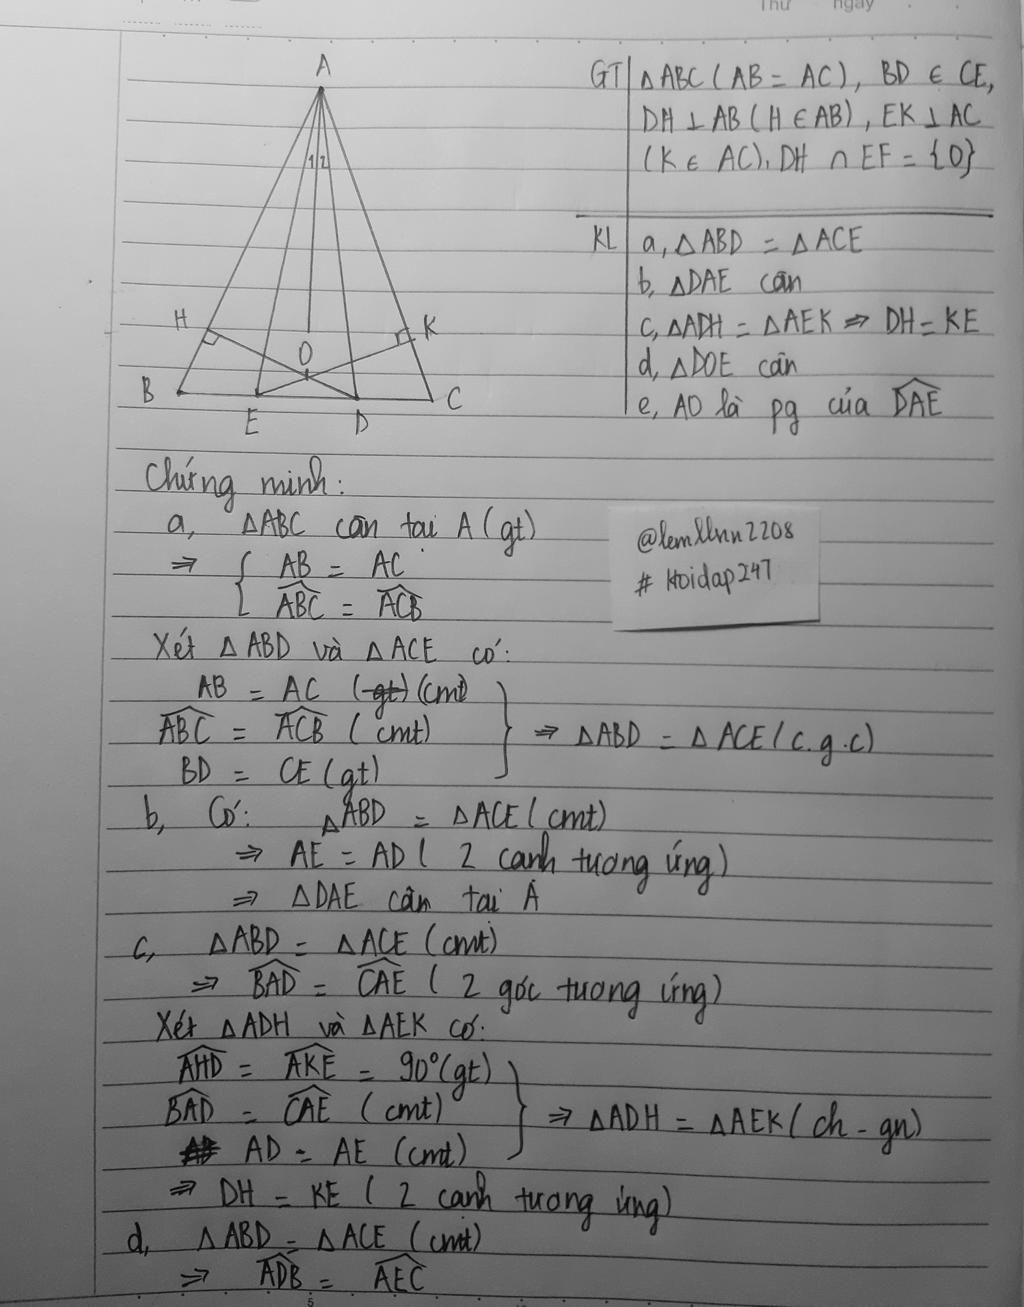 Thứ ngày
A
1 2
H
K
O
B
E
D
C
GT ΔABC (AB = AC), BD ∈ CE,
DH ⊥ AB (H ∈ AB), EK ⊥ AC
(K ∈ AC), DH ∩ EF = {O}
KL a, ΔABD = ΔACE
b, ΔDAE cân
c, ΔADH = ΔAEK => DH = KE
d, ΔDOE cân
e, AO là pg của DAE
Chứng minh:
a, ΔABC cân tại A (gt)
=> { AB = AC
ABC = ACB
@lemllnn2208
# Hoidap247
Xét ΔABD và ΔACE có:
AB = AC (gt) (cmt)
ABC = ACB (cmt)
BD = CE (gt)
=> ΔABD = ΔACE (c.g.c)
b, Có: ΔABD = ΔACE (cmt)
=> AE = AD ( 2 cạnh tương ứng)
=> ΔDAE cân tại A
c, ΔABD = ΔACE (cmt)
=> BAD = CAE ( 2 góc tương ứng)
Xét ΔADH và ΔAEK có:
AHD = AKE = 90° (gt)
BAD = CAE (cmt)
AD = AE (cmt)
=> ΔADH = ΔAEK ( ch - gn)
=> DH = KE ( 2 cạnh tương ứng)
d, ΔABD = ΔACE (cmt)
=> ADB = AEC
5